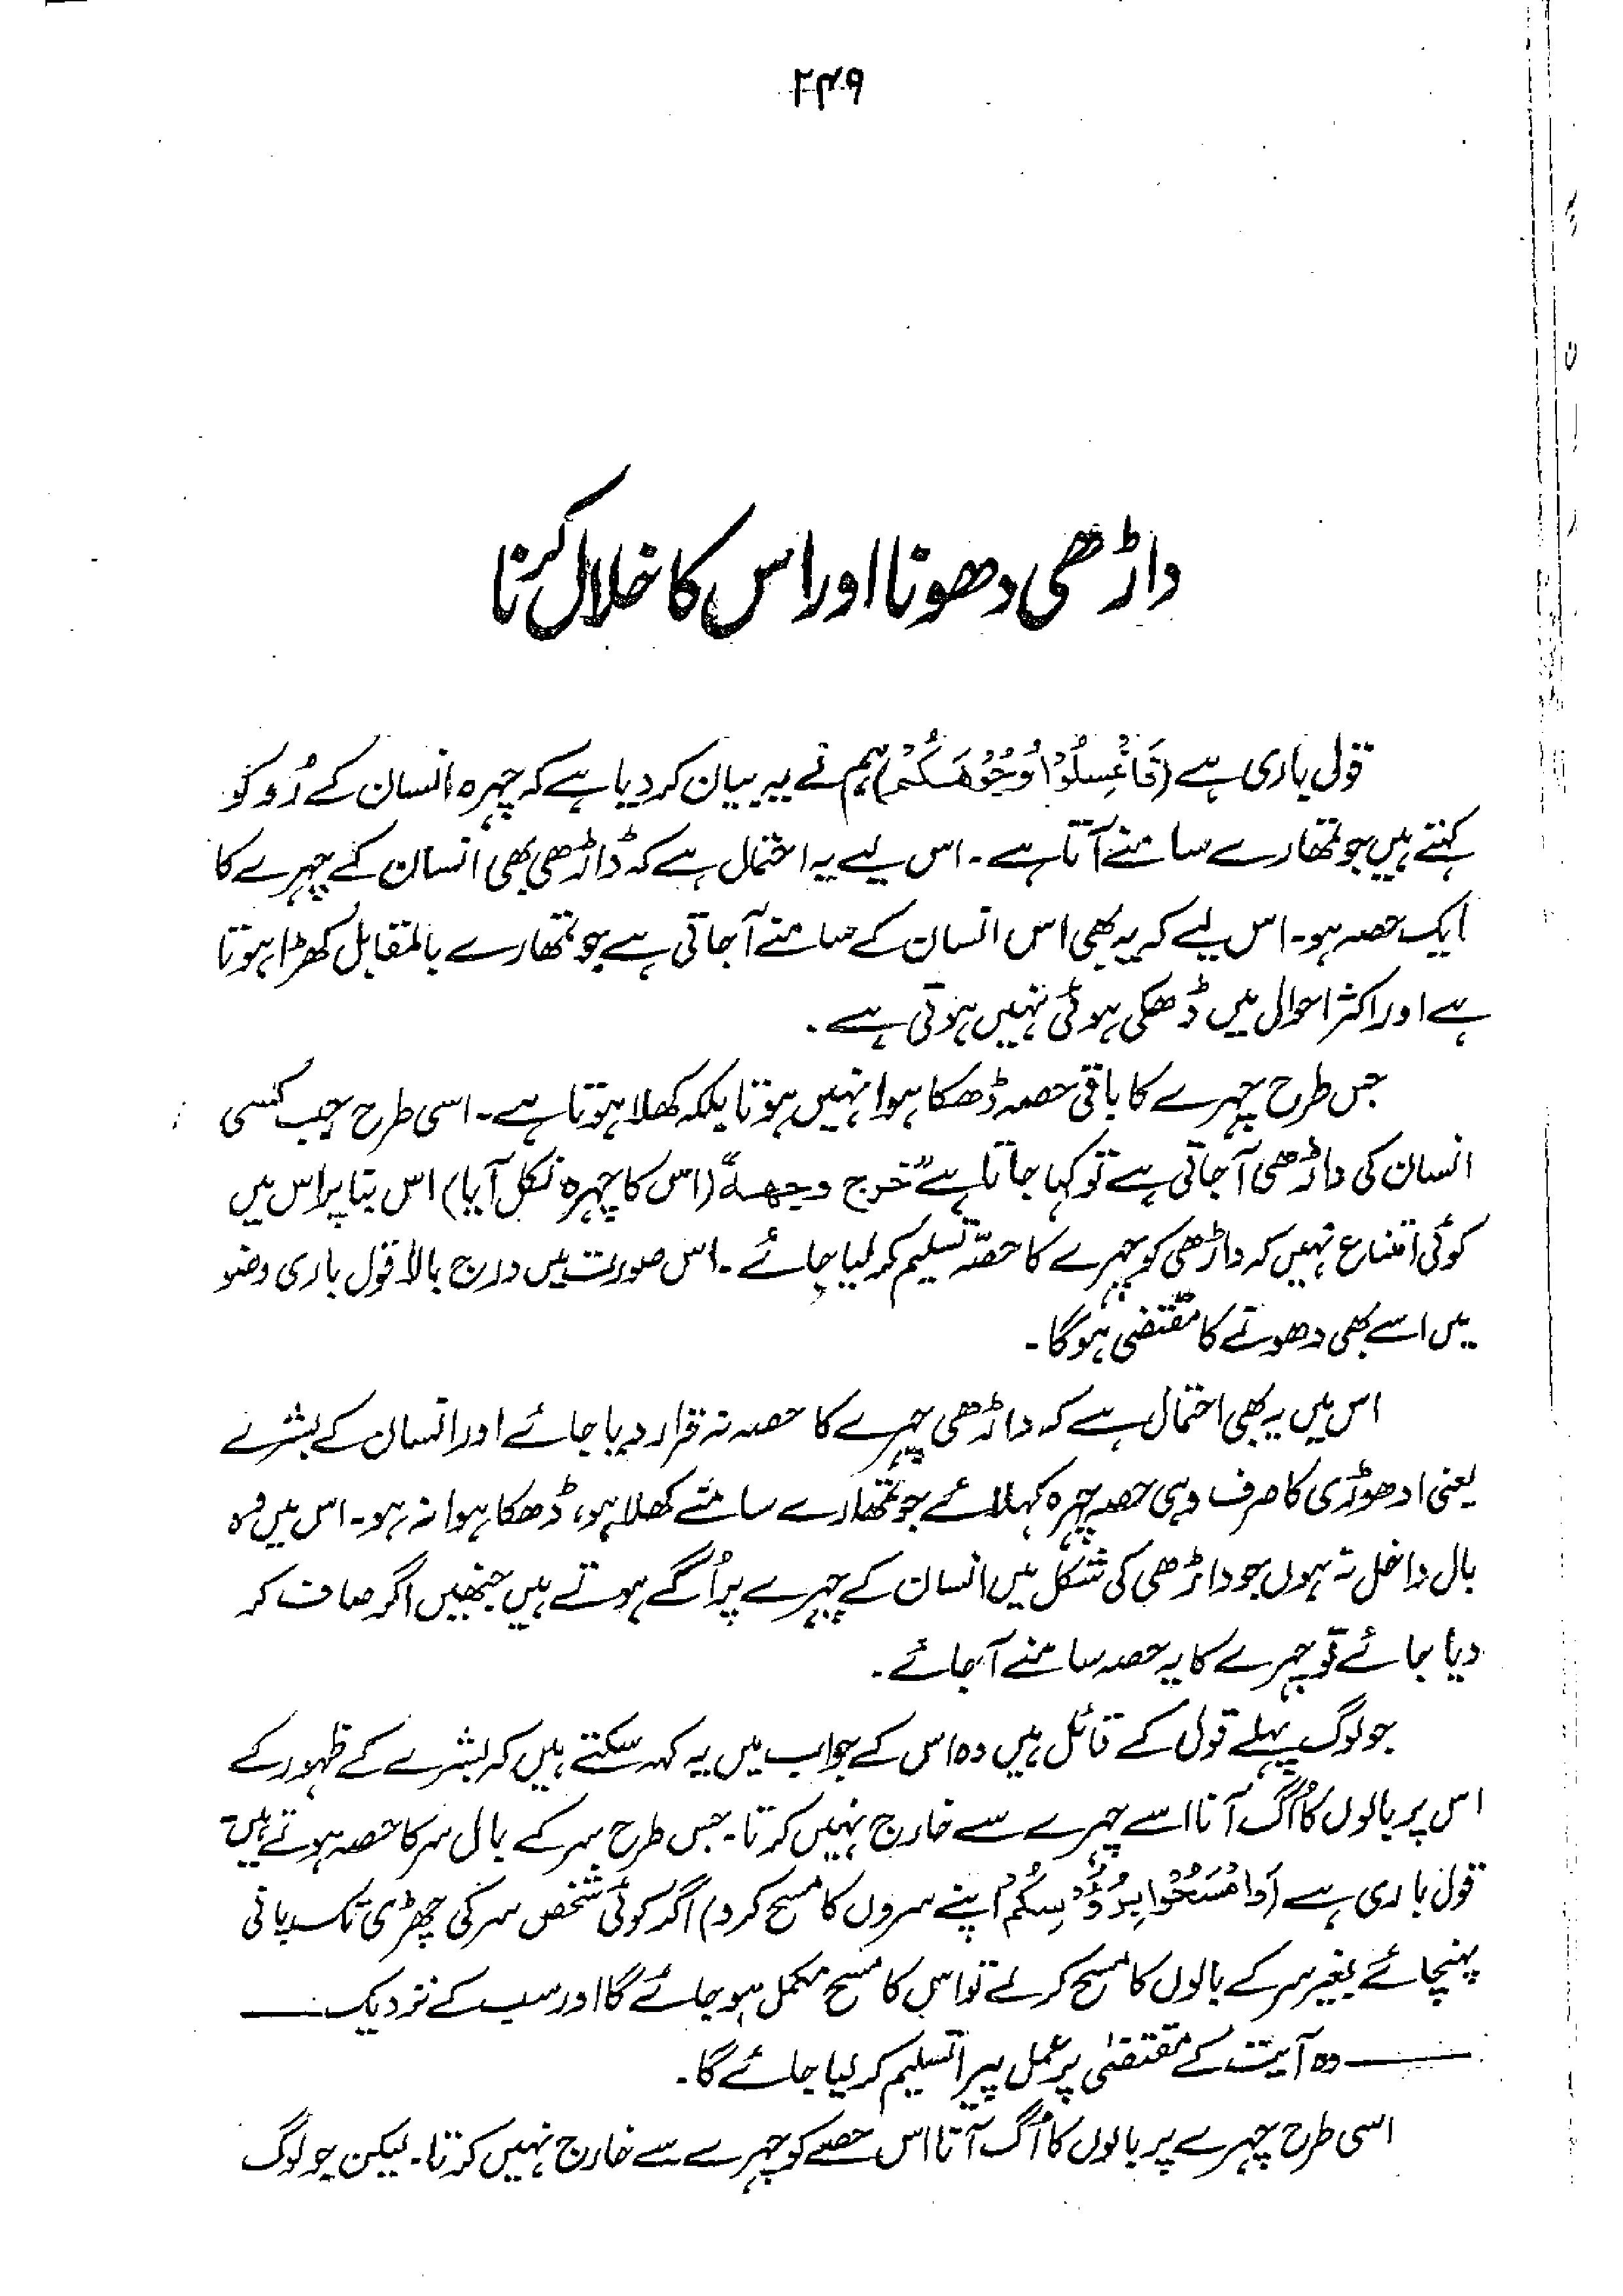 ۲۴۹
داڑھی دھونا اور اس کا خلال کرنا
قول باری ہے (فَاغْسِلُوْا وُجُوْهَكُمْ) ہم نے یہ بیان کر دیا ہے کہ چہرہ انسان کے رُو کو
کہتے ہیں جو تمھارے سامنے آتا ہے۔ اس لیے یہ احتمال ہے کہ ڈاڑھی بھی انسان کے چہرے کا
ایک حصہ ہو۔ اس لیے کہ یہ بھی اس انسان کے سامنے آجاتی ہے جو تمھارے بالمقابل کھڑا ہوتا
ہے اور اکثر احوال میں ڈھکی ہوئی نہیں ہوتی ہے۔
جس طرح چہرے کا باقی حصہ ڈھکا ہوا نہیں ہوتا بلکہ کھلا ہوتا ہے۔ اسی طرح جب کسی
انسان کی داڑھی آجاتی ہے تو کہا جاتا ہے "خرج وجهه" (اس کا چہرہ نکل آیا) اس بنا پر اس میں
کوئی امتناع نہیں کہ داڑھی کو چہرے کا حصّہ تسلیم کر لیا جائے۔ اس صورت میں درج بالا قول باری وضو
میں اسے بھی دھونے کا مقتضی ہوگا۔
اس میں یہ بھی احتمال ہے کہ داڑھی چہرے کا حصہ نہ قرار دیا جائے اور انسان کے بشرے
یعنی ادھوڑی کا صرف وہی حصہ چہرہ کہلائے جو تمھارے سامنے کھلا ہو، ڈھکا ہوا نہ ہو۔ اس میں وہ
بال داخل نہ ہوں جو داڑھی کی شکل میں انسان کے چہرے پر اُگے ہوتے ہیں جنھیں اگر صاف کر
دیا جائے تو چہرے کا یہ حصہ سامنے آجائے۔
جو لوگ پہلے قول کے قائل ہیں وہ اس کے جواب میں یہ کہہ سکتے ہیں کہ بشرے کے ظہور کے
اس پر بالوں کا اُگ آنا اسے چہرے سے خارج نہیں کرتا۔ جس طرح سر کے بال سر کا حصہ ہوتے ہیں
قول باری ہے (وَامْسَحُوْا بِرُءُوْسِكُمْ اپنے سروں کا مسح کرو) اگر کوئی شخص سر کی چمڑی تک پانی
پہنچائے بغیر سر کے بالوں کا مسح کرلے تو اس کا مسح مکمل ہو جائے گا اور سب کے نزدیک ــــ
ــــ وہ آیت کے مقتضیٰ پر عمل پیرا تسلیم کر لیا جائے گا۔
اسی طرح چہرے پر بالوں کا اُگ آنا اس حصے کو چہرے سے خارج نہیں کرتا۔ لیکن جو لوگ